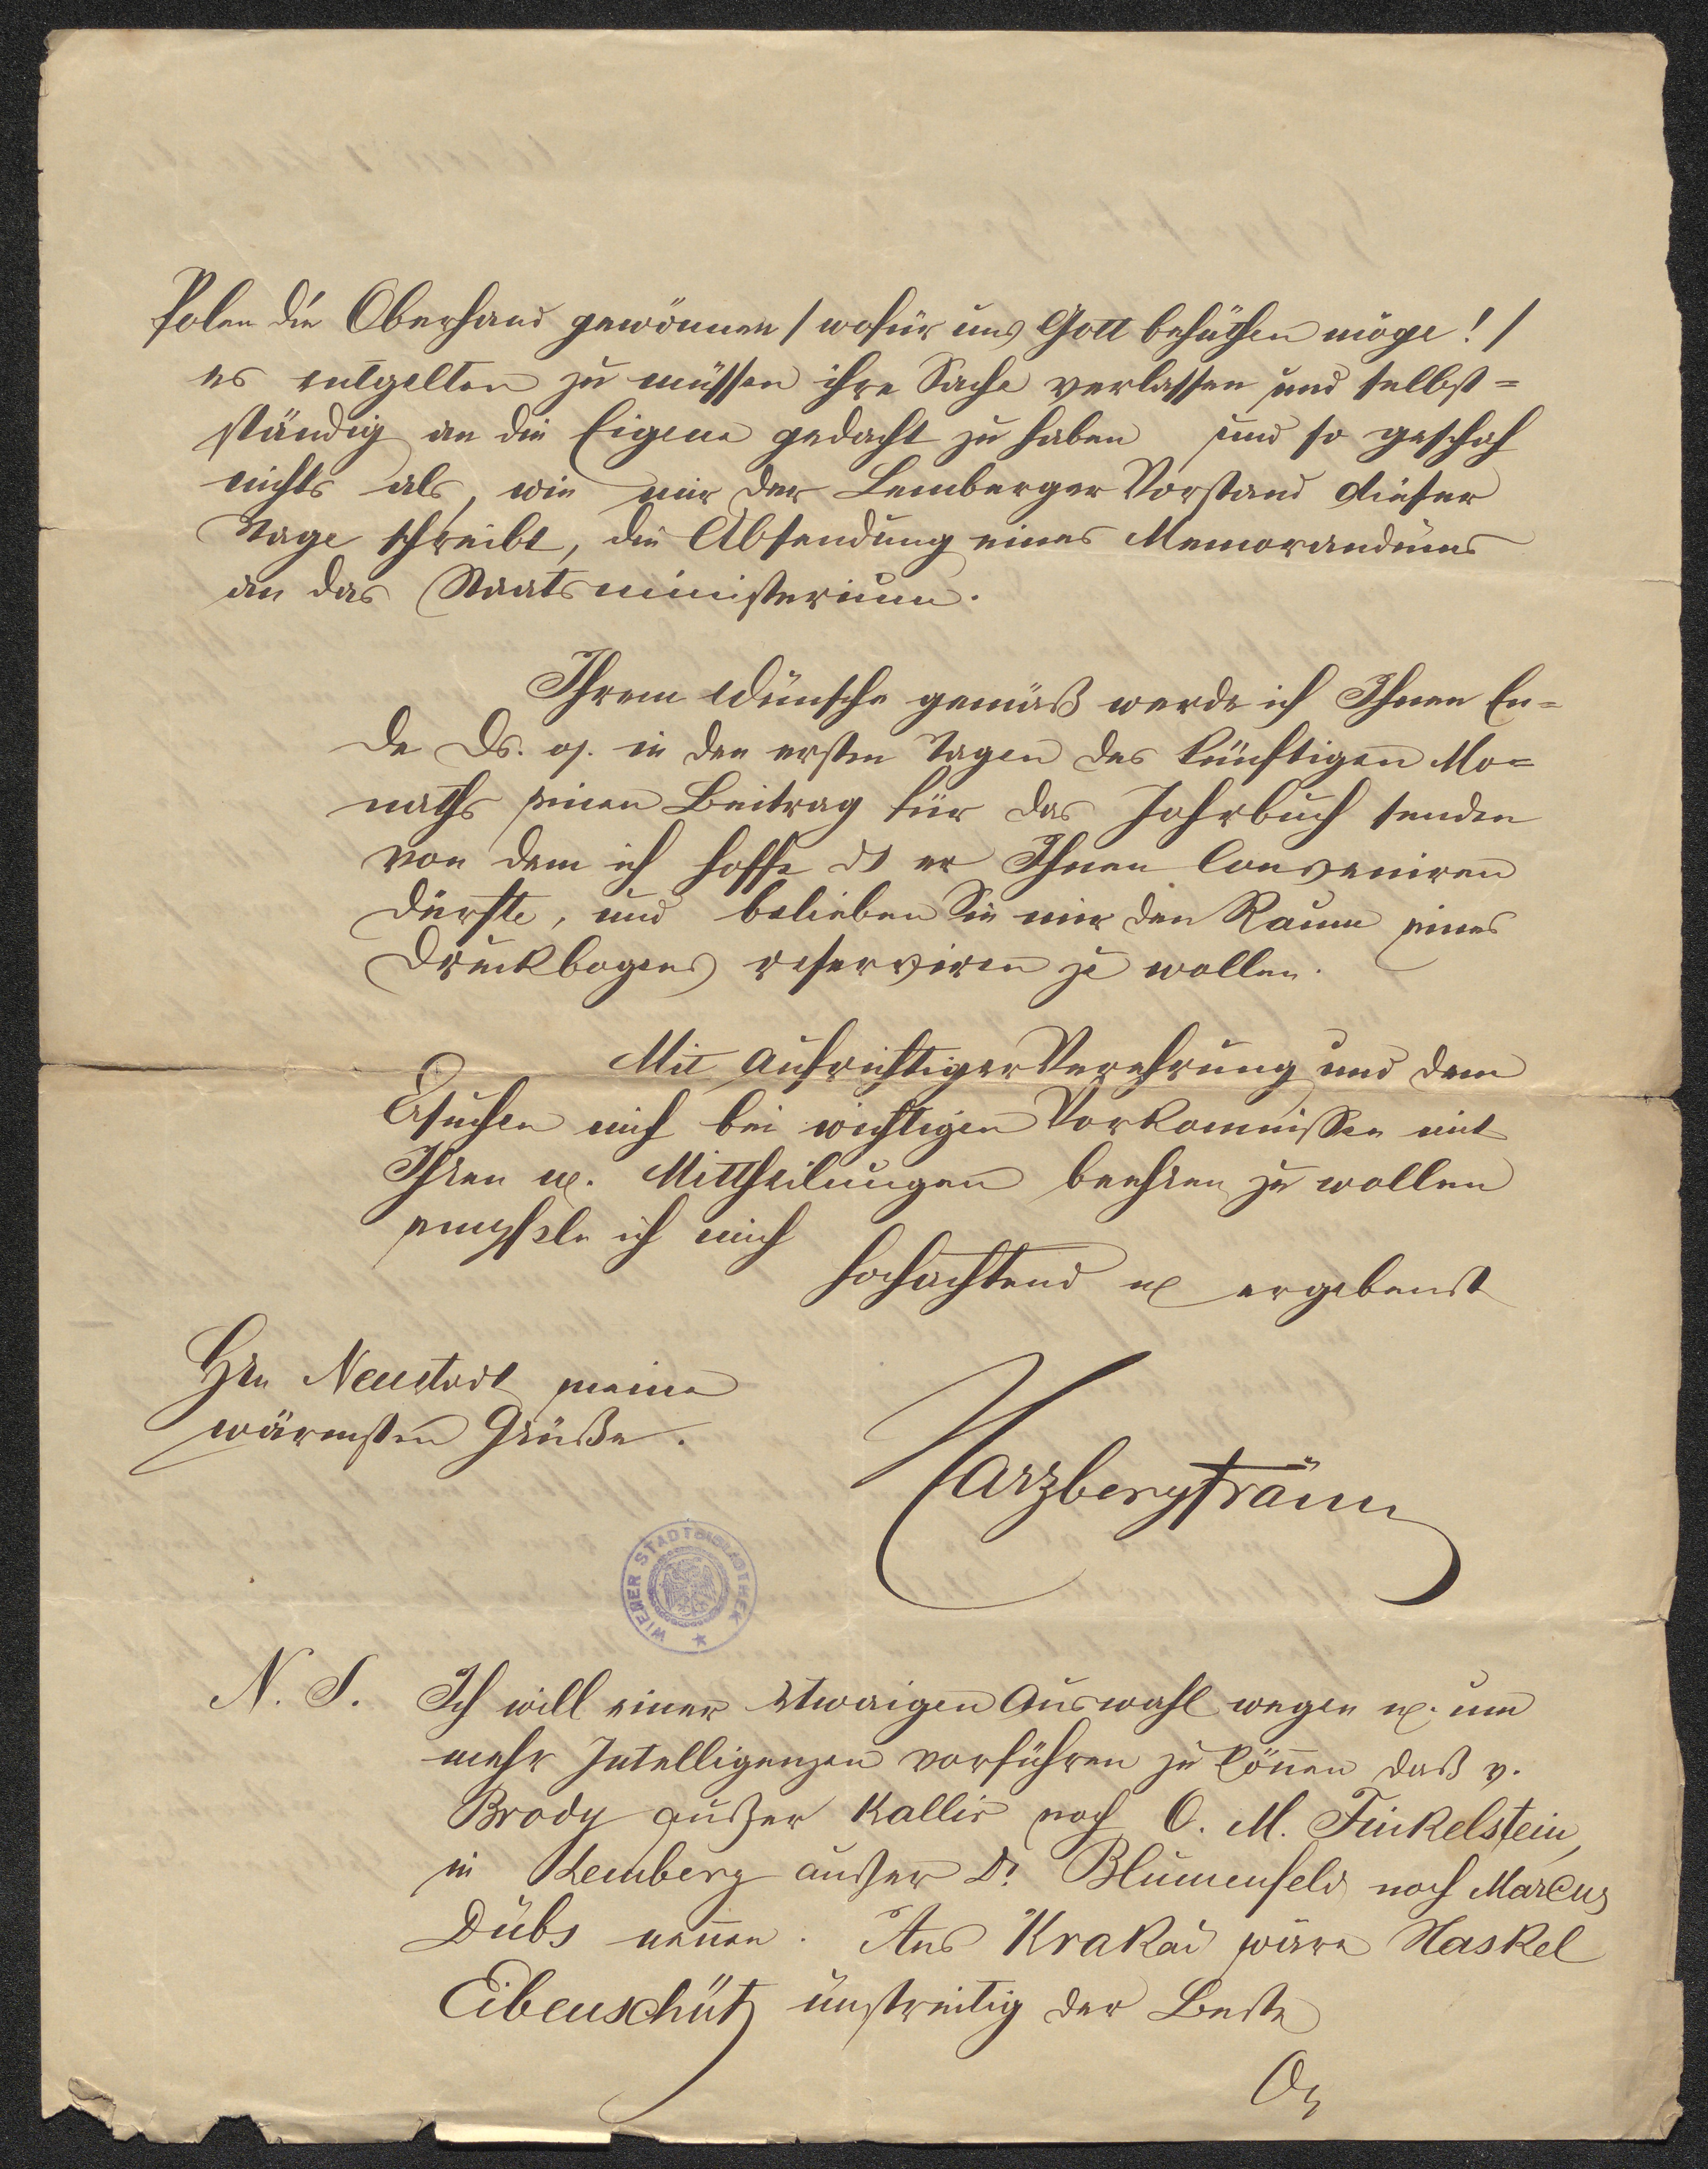 Polen die Oberhand gewönnen / wofür uns Gott behüthen möge! /
es entgelten zu müssen ihre Sache verlassen und selbst=
ständig an die Eigene gedacht zu haben und so geschah
nichts als, wie mir der Lemberger Vorstand dieser
Tage schreibt, die Absendung eines Memorandums
an das Staatsministerium.
Ihrem Wunsche gemäß werde ich Ihnen En=
de Ds. od. in den ersten Tagen des künftigen Mo=
naths einen Beitrag für das Jahrbuch senden
von dem ich hoffe ds er Ihnen conveniren
dürfte, und belieben Sie mir den Raum eines
Druckbogens reserviren zu wollen.
Mit aufrichtiger Verehrung und dem
Ersuchen mich bei wichtigen Vorkommnissen mit
Ihren w. Mittheilungen beehren zu wollen
empfele ich mich
hochachtend u ergebenst
Hrn Neustadt meine
wärmsten Grüße.
Harzbergfräun
WIENER STADTBIBLIOTHEK
N. S. Ich will einer etwaigen Auswahl wegen u. um
mehr Intelligenzen vorführen zu können daß v.
Brody außer Kallir noch O. M. Finkelstein,
in Lemberg außer Dr. Blumenfeld noch Marcus
Dubs nennen. Aus Krakau wäre Haskel
Eibenschütz unstreitig der Beste